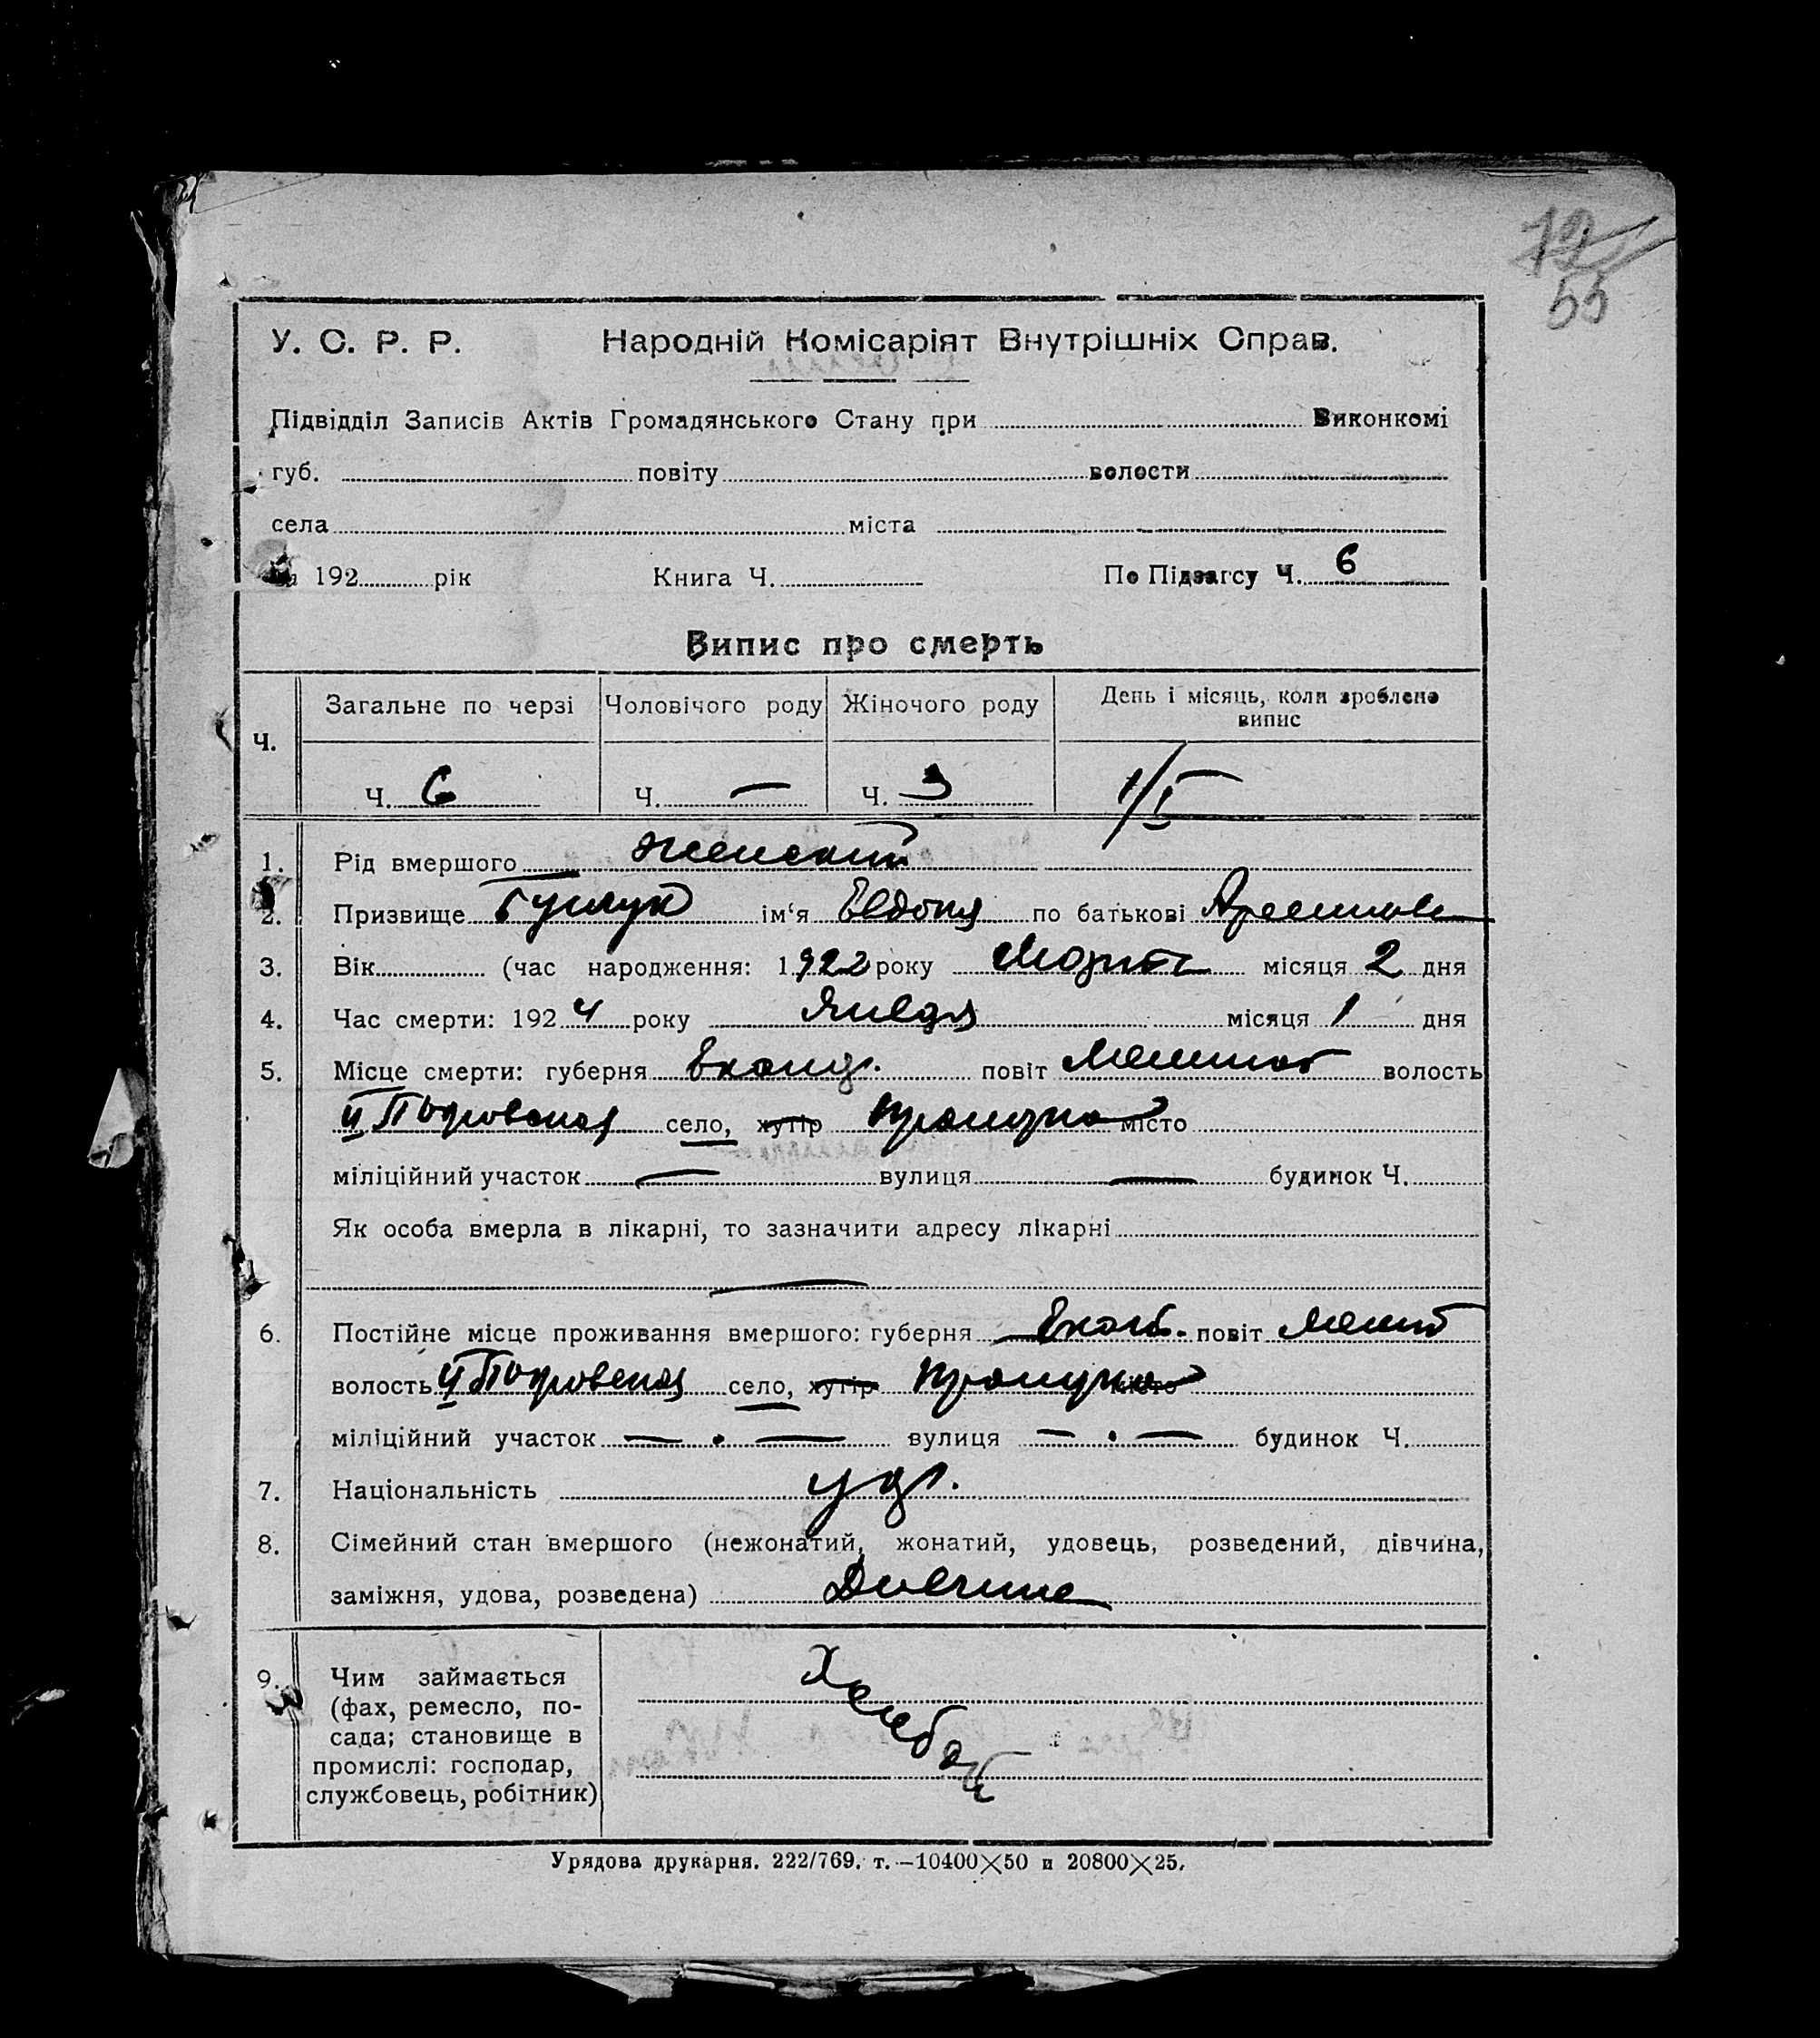 55
У. С. Р. Р. Народній Комісаріят Внутрішніх Справ.
Підвідділ Записів Актів Громадянського Стану при Виконкомі
губ. повіту волости
села міста
192 рік Книга Ч. По Підзагсу Ч. 6
Випис про смерть
Ч. Загальне по черзі Чоловічого роду Жіночого роду День і місяць, коли зроблено випис
Ч. 6 Ч. — Ч. 3 1/I
1. Рід вмершого женский
2. Призвище ім‘я Евдокия по батькові
3. Вік (час народження: 1922 року Марта місяця 2 дня
4. Час смерти: 1924 року Января місяця 1 дня
5. Місце смерти: губерня повіт волость
II Покровская село, хутір місто
міліційний участок — вулиця — будинок Ч.
Як особа вмерла в лікарні, то зазначити адресу лікарні
—
6. Постійне місце проживання вмершого: губерня повіт
волость II Покровская село, хутір місто
міліційний участок — . — вулиця — . — будинок Ч.
7. Національність укр.
8. Сімейний стан вмершого (нежонатий, жонатий, удовець, розведений, дівчина,
заміжня, удова, розведена) Дивчина
9. Чим займається
(фах, ремесло, по-
сада; становище в
промислі: господар,
службовець, робітник)
Хлебор
Урядова друкарня. 222/769. т.—10400×50 и 20800×25.